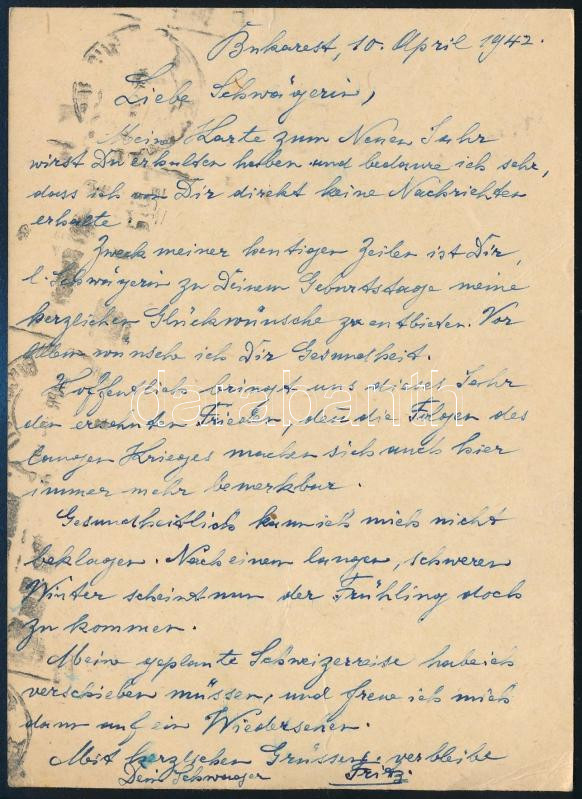 Bukarest, 10. April 1942.
Liebe Schwägerin,
Meine Karte zum Neuen Jahr
wirst Du erhalten haben und bedaure ich sehr,
dass ich von Dir direkt keine Nachrichten
erhalte.
Zweck meiner heutigen Zeilen ist Dir,
l. Schwägerin zu Deinem Geburtstage meine
herzlichen Glückwünsche zu entbieten. Vor
allem wünsche ich Dir Gesundheit.
Hoffentlich bringt uns dieses Jahr
den ersehnten Frieden, denn die Folgen des
langen Krieges machen sich auch hier
immer mehr bemerkbar.
Gesundheitlich kann ich mich nicht
beklagen. Nach einem langen, schweren
Winter scheint nun der Frühling doch
zu kommen.
Meine geplante Schweizerreise habe ich
verschieben müssen, und freue ich mich
dann auf ein Wiedersehen.
Mit herzlichen Grüssen verbleibe
Dein Schwager Fritz.
databanth